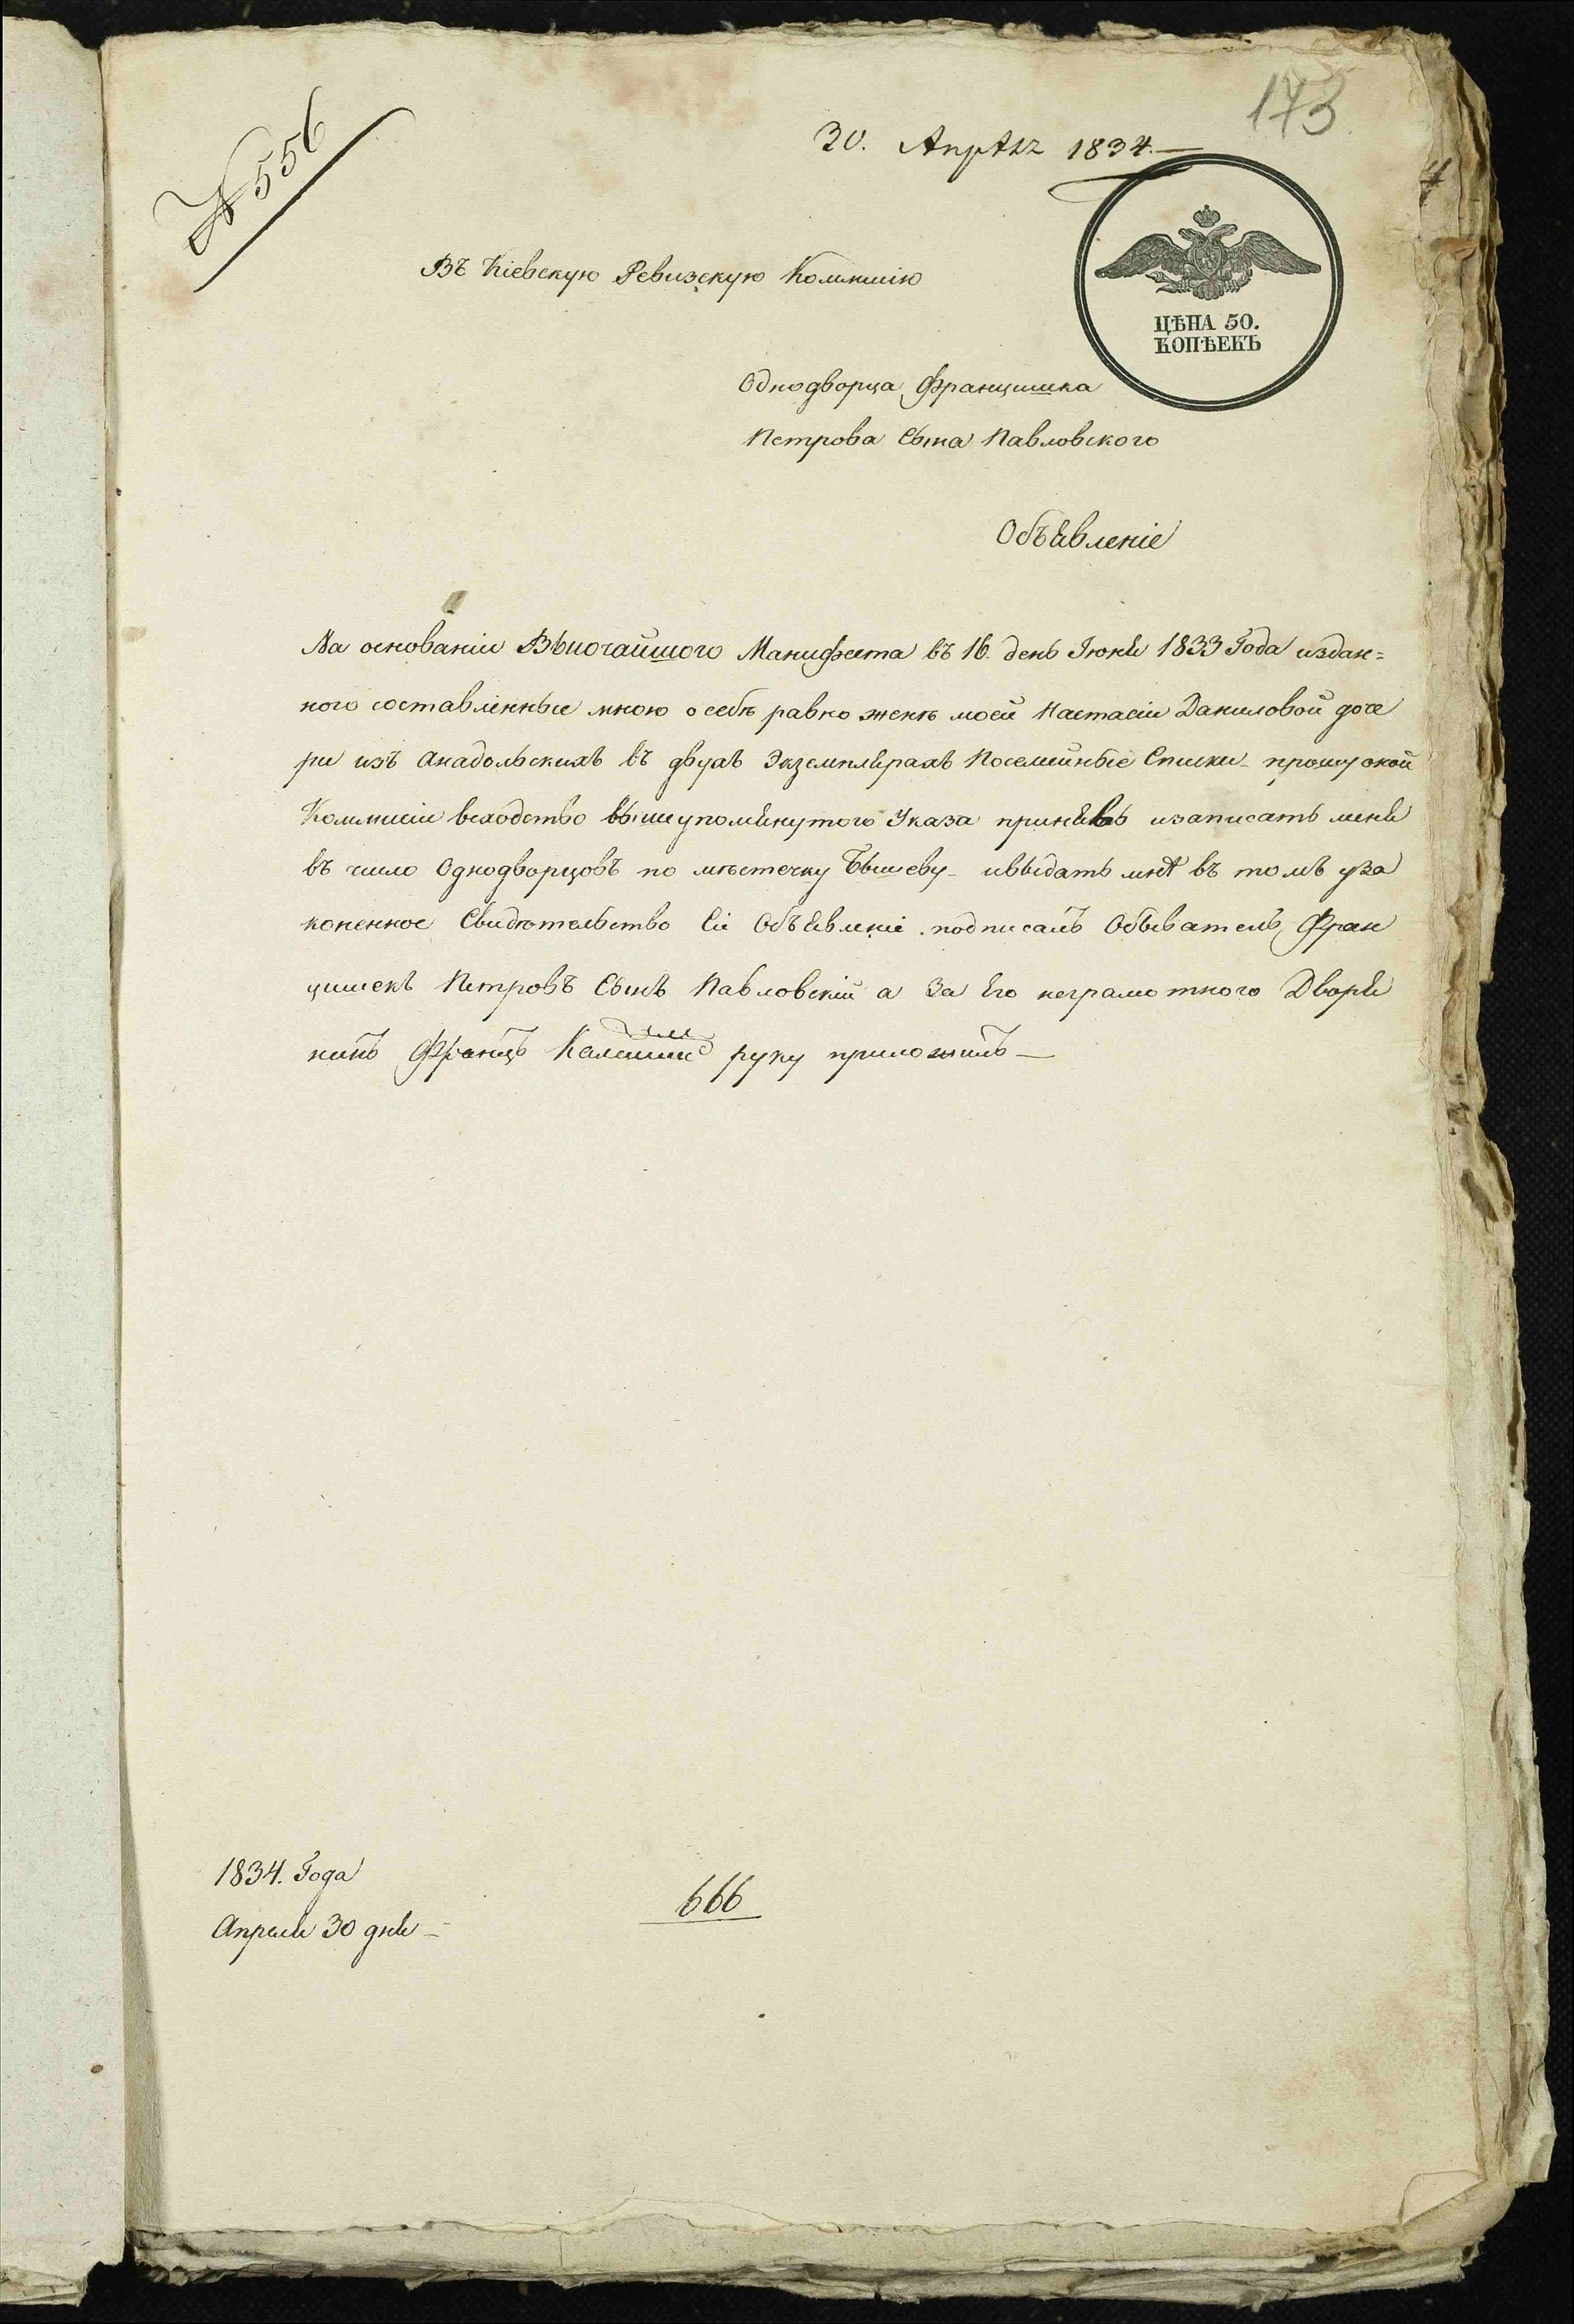 173
№ 556
30. Апрѣль 1834.
Въ Кіевскую Ревизскую Коммисію
ЦѢНА 50.
КОПѢЕКЪ
Однодворца Францишка
Петрова Сына Павловского
Объявленіе
На основаніи Высочайшого Манифеста въ 16. день Іюня 1833 Года издан=
ного составленные мною о себѣ равно женѣ моей Настасіи Даниловой доче
ри изъ Анадольскихъ въ двухъ Экземплярахъ Посемейные Списки прошу оной
Коммисіи всходство вышеупомянутого Указа принявъ изаписать меня
въ число Однодворцовъ по мѣстечку Бышеву ивыдать мнѣ въ томъ уза
коненное Свидѣтельство Сіе Объявленіе подписалъ Обыватель Фран
цишекъ Петровъ Сынъ Павловскій а За Его неграмотного Дворя
нинъ Францъ руку приложилъ
1834. Года
Апреля 30 дня
666